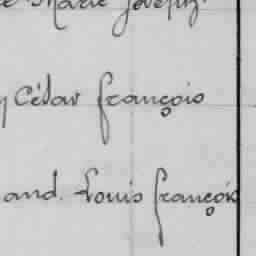 Marie Joseph
César françois
and. Louis françois